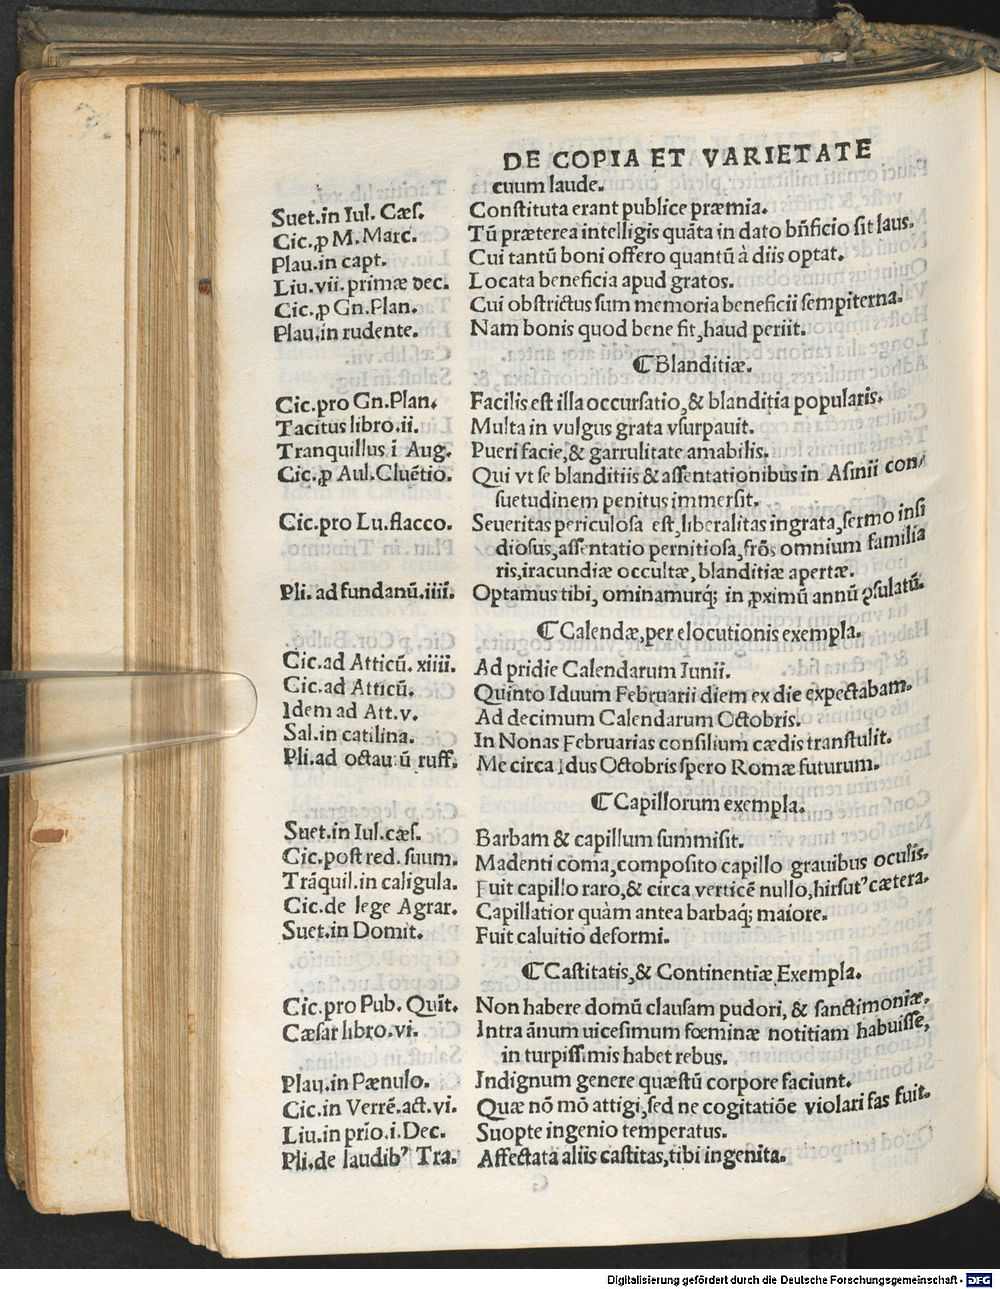 DE COPIA ET VARIETATE
cuum laude.
Suet.in Iul. Cæſ. Conſtituta erant publice præmia.
Cic.ꝓ M. Marc. Tũ præterea intelligis quãta in dato bñficio ſit laus.
Plau.in capt. Cui tantũ boni offero quantũ à diis optat.
Liu.vii.primæ dec. Locata beneficia apud gratos.
Cic.ꝓ Gn.Plan. Cui obſtrictus ſum memoria beneficii ſempiterna.
Plau.in rudente. Nam bonis quod bene fit,haud periit.
⸿Blanditiæ.
Cic.pro Gn.Plan. Facilis eſt illa occurſatio,& blanditia popularis.
Tacitus libro.ii. Multa in vulgus grata vſurpauit.
Tranquillus ĩ Aug. Pueri facie,& garrulitate amabilis.
Cic.ꝓ Aul.Cluẽtio. Qui vt ſe blanditiis & aſſentationibus in Aſinii con/
ſuetudinem penitus immerſit.
Cic.pro Lu.flacco. Seueritas periculoſa eſt,liberalitas ingrata,ſermo inſi
dioſus,aſſentatio pernitioſa,frõs omnium familia
ris,iracundiæ occultæ,blanditiæ apertæ.
Pli. ad fundanũ.iiii. Optamus tibi, ominamurq; in ꝓximũ annũ ꝯſulatũ.
⸿Calendæ,per elocutionis exempla.
Cic.ad Atticũ. xiiii. Ad pridie Calendarum Iunii.
Cic.ad Atticũ. Quinto Iduum Februarii diem ex die expectabam.
Idem ad Att.v. Ad decimum Calendarum Octobris.
Sal.in catilina. In Nonas Februarias conſilium cædis tranſtulit.
Pli.ad octauiũ ruff. Me circa Idus Octobris ſpero Romæ futurum.
⸿Capillorum exempla.
Suet.in Iul.cæſ. Barbam & capillum ſummiſit.
Cic.poſt red. ſuum. Madenti coma,compoſito capillo grauibus oculis.
Trãquil.in caligula. Fuit capillo raro,& circa verticẽ nullo,hirſutꝰ cætera.
Cic.de lege Agrar. Capillatior quàm antea barbaq; maiore.
Suet.in Domit. Fuit caluitio deformi.
⸿Caſtitatis,& Continentiæ Exempla.
Cic.pro Pub. Quĩt. Non habere domũ clauſam pudori, & ſanctimoniæ.
Cæſar libro.vi. Intra ãnum uiceſimum fœminæ notitiam habuiſſe,
in turpiſſimis habet rebus.
Plau.in Pænulo. Indignum genere quæſtũ corpore faciunt.
Cic.in Verrẽ.act.vi. Quæ nõ mõ attigi,ſed ne cogitatiõe violari fas fuit.
Liu.in prĩo.i.Dec. Suopte ingenio temperatus.
Pli.de laudibꝰ Tra. Affectata aliis caſtitas,tibi ingenita.
Digitalisierung gefördert durch die Deutsche Forschungsgemeinschaft - DFG